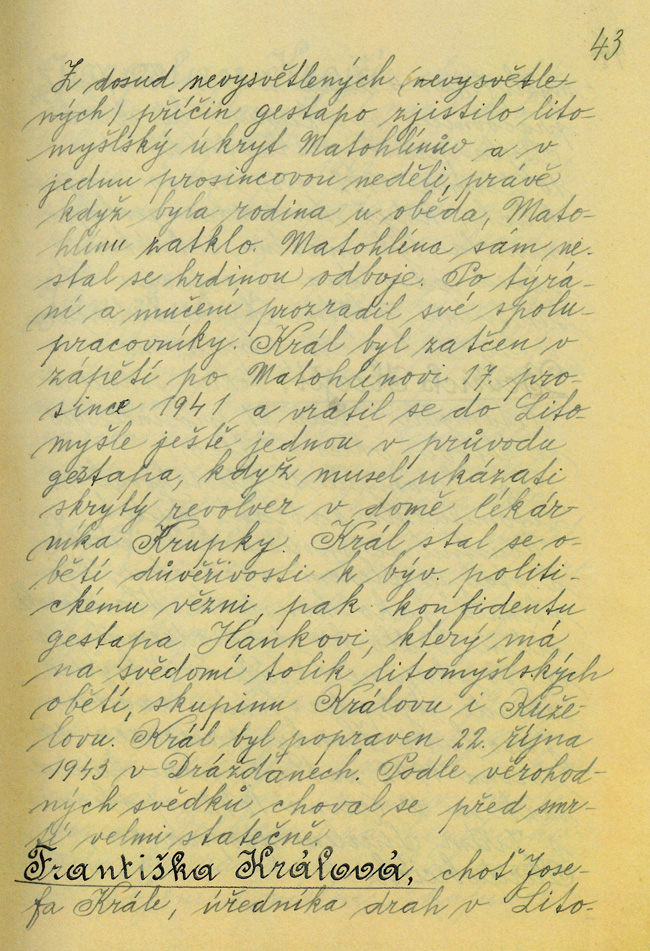 43
Z dosud nevysvětlených (nevysvětle-
ných) příčin gestapo zjistilo lito-
myšlský úkryt Matohlínův a v
jednu prosincovou neděli, právě
když byla rodina u oběda, Mato-
hlínu zatklo. Matohlína sám ne-
stal se hrdinou odboje. Po týrá-
ní a mučení prozradil své spolu-
pracovníky. Král byl zatčen v
zápětí po Matohlínovi 17. pro-
since 1941 a vrátil se do Lito-
myšle ještě jednou v průvodu
gestapa, když musel ukázati
skrytý revolver v domě lékár-
níka Krupky. Král stal se o-
bětí důvěřivosti k býv. politi-
ckému vězni, pak konfidentu
gestapa Hánkovi, který má
na svědomí tolik litomyšlských
obětí, skupinu Královu i Kuže-
lovu. Král byl popraven 22. října
1943 v Drážďanech. Podle věrohod-
ných svědků choval se před smr-
tí velmi statečně.
Františka Králová, choť Jose-
fa Krále, úředníka drah v Lito-